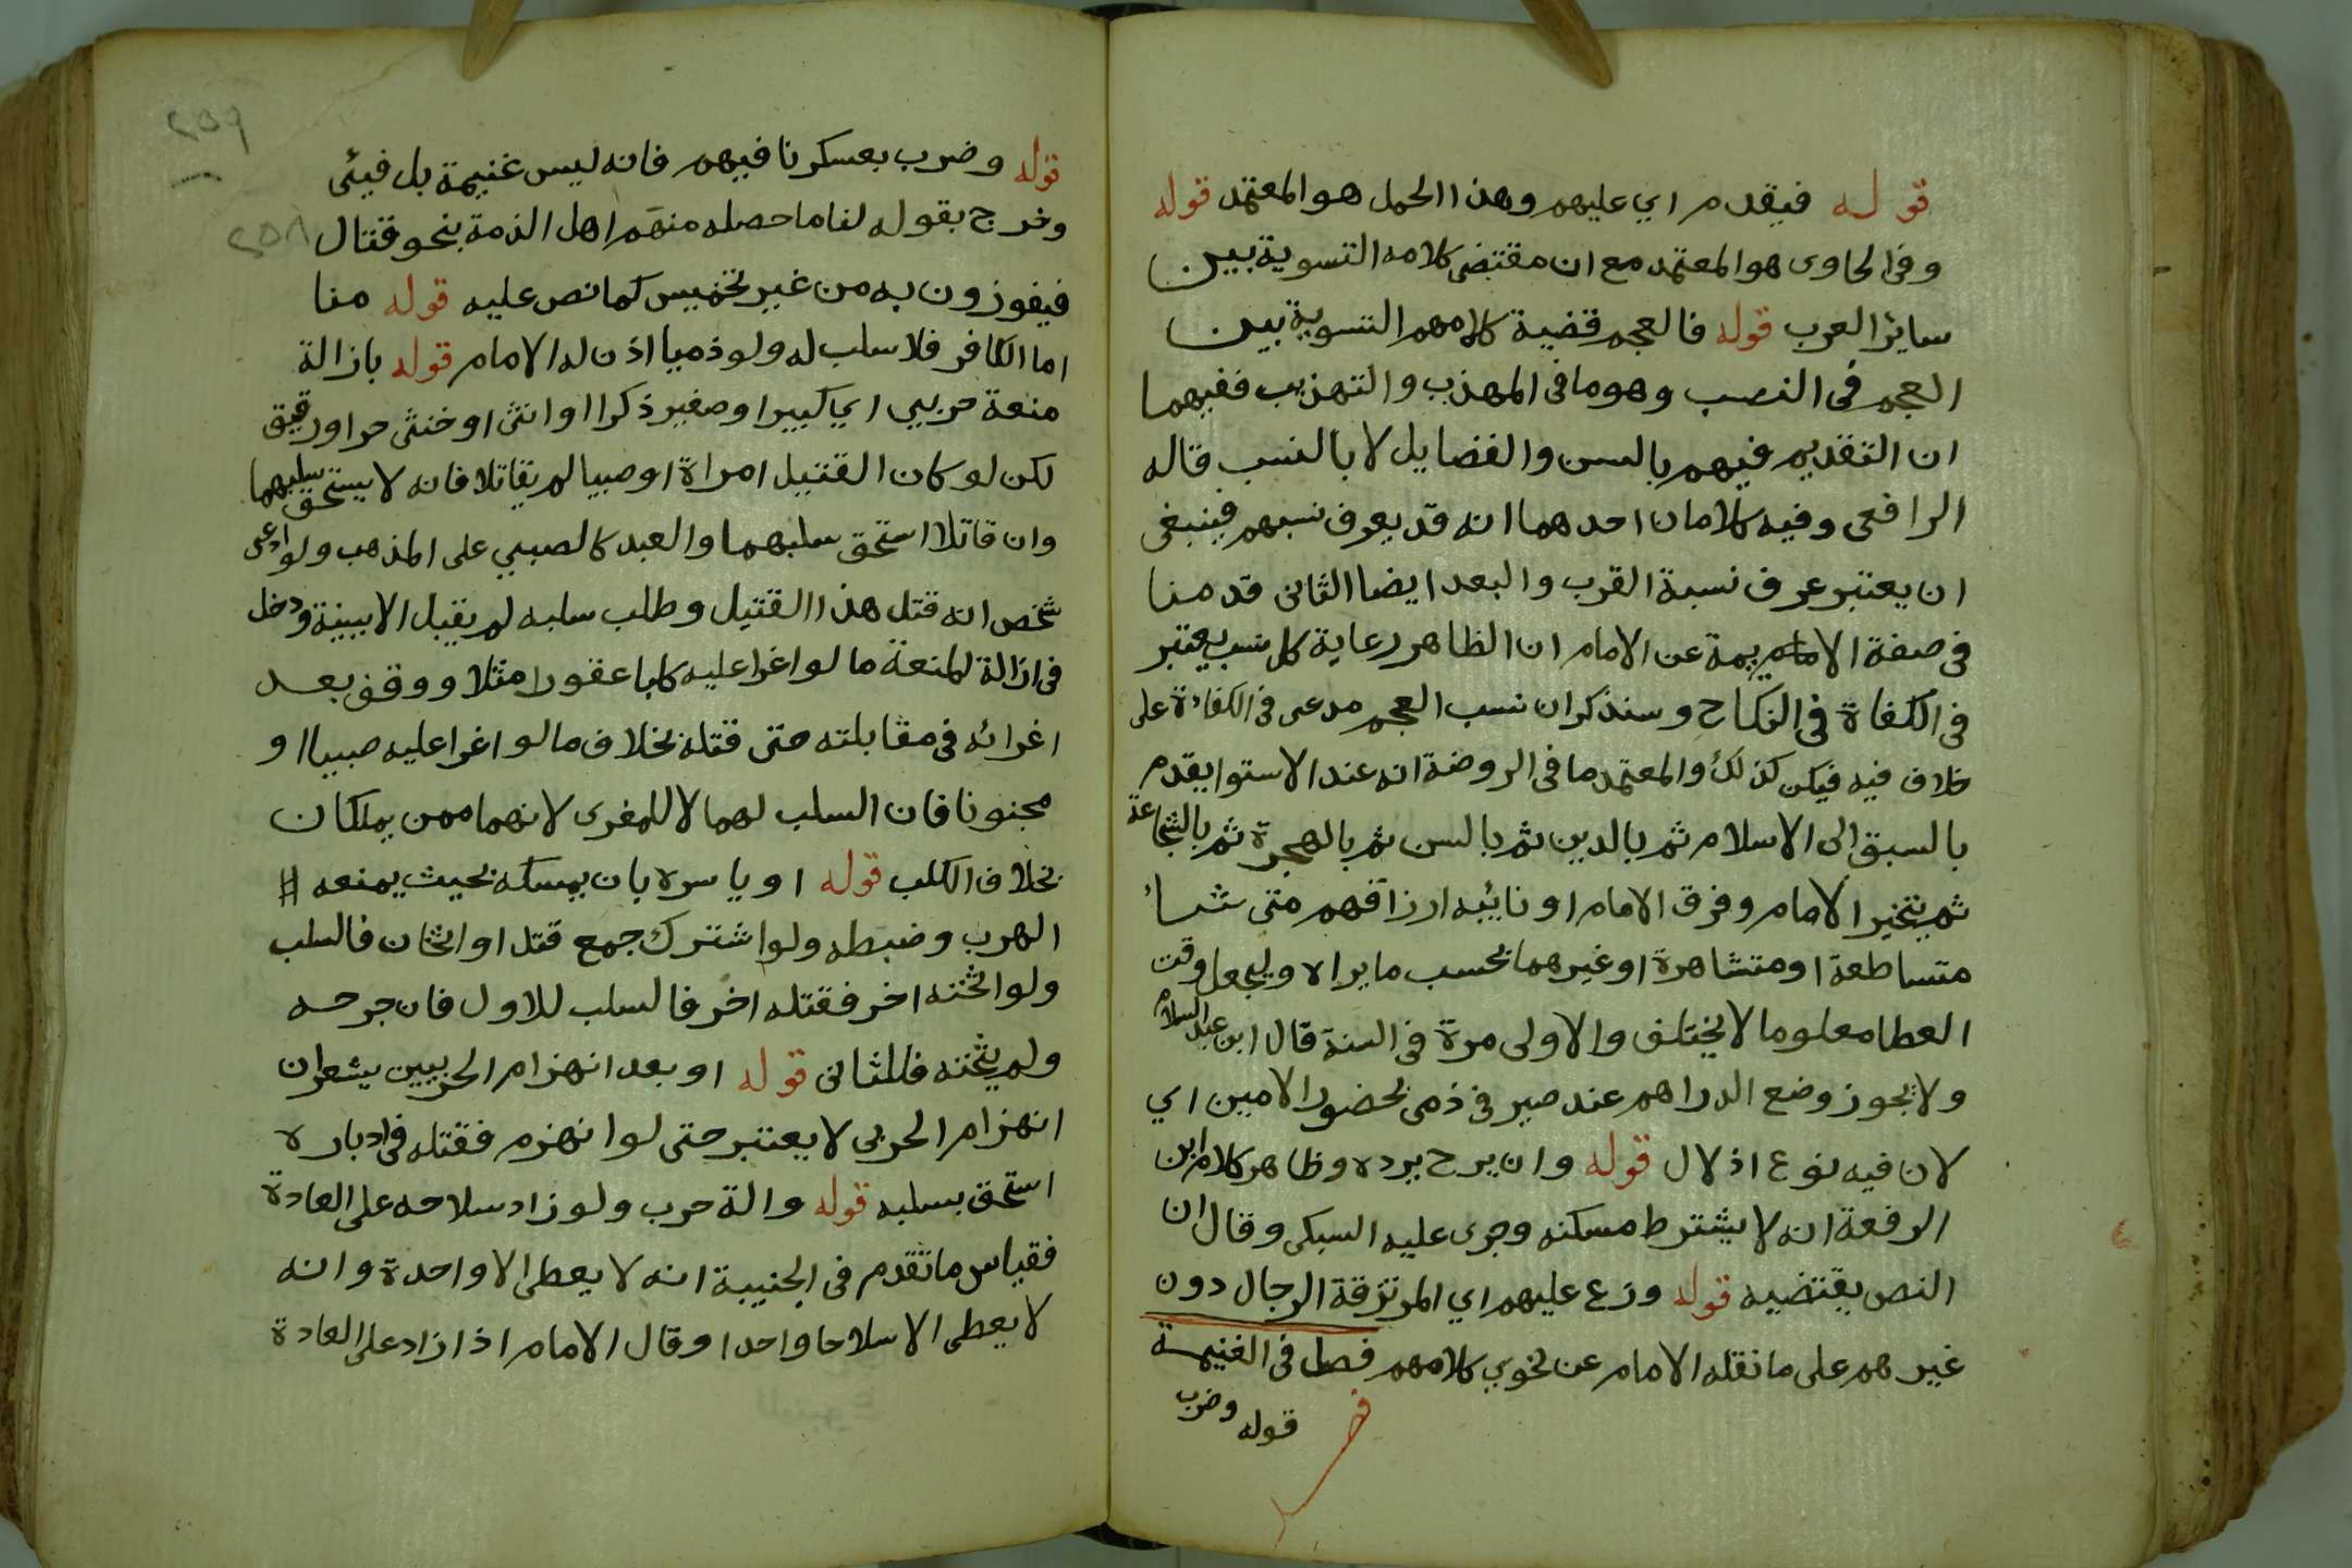 قوله فيقدم اي عليهم وهذا الحمل هو المعتمد قوله
وفي الحاوى هو المعتمد مع ان مقتضى كلامه التسوية بين
ساير العرب قوله فالعجم قضية كلامهم التسوية بين
العجم في النصب وهو ما في المهذب والتهذيب ففيهما
ان التقديم فيهم بالسن والفضايل لا بالنسب قاله
الرافعى وفيه كلامان احدهما انه قد يعرف نسبهم فينبغى
ان يعتبر عرف نسبة القرب والبعد ايضا الثانى قدمنا
في صفة الايمة عن الامام ان الظاهر رعاية كل نسب يعتبر
في الكفاة في النكاح وسنذكر ان نسب العجم مدعى في الكفاءة على
خلاف فيه فيكن كذلك والمعتمد ما في الروضة انه عند الاستوا يقدم
بالسبق الى الاسلام ثم بالدين ثم بالسن ثم بالهجرة ثم بالشجاعة
ثم يتخير الامام وفرق الامام او نائبه ارزاقهم متى شاء
متساطعة او متشاهرة او غيرهما بحسب ما يراه وليجعل وقت
العطا معلوما لا يختلف والاولى مرة في السنة قال ابن عبد السلام
ولا يجوز وضع الدراهم عند صيرفي ذمى بحضور الامين اي
لان فيه نوع اذلال قوله وان يرح برده وظاهر كلام ابن
الرفعة انه لا يشترط مسكنه وجرى عليه السبكى وقال ان
النص يقتضيه قوله وزع عليهم اي المرتزقة الرجال دون
غيرهم على ما نقله الامام عن نحوي كلامهم فصل في الغنيمة
قوله وضرب
٢٥٩
قوله وضرب بعسكرنا فيهم فانه ليس غنيمة بل فيئى
وخرج بقوله لنا ما حصله منهم اهل الذمة بنحو قتال
٢٥٨
فيفوزون به من غير تخميس كما نص عليه قوله منا
اما الكافر فلا سلب له ولو ذميا اذن له الامام قوله بازالة
منعة حربي اي كبيرا وصغير ذكرا او انثى او خنثى حر اورقيق
لكن لو كان القتيل امراة او صبيا لم يقاتلا فانه لا يستحق سلبهما
وان قاتلا استحق سلبهما والعبد كالصبي على المذهب ولو ادعى
شخص انه قتل هذا القتيل وطلب سلبه لم يقبل الا ببينة ودخل
في ازالة المنعة ما لو اغرا عليه كلبا عقورا مثلا ووقف بعد
اغرائه في مقابلته حتى قتله بخلاف ما لو اغرا عليه صبيا او
مجنونا فان السلب لهما لا للمغرى لانهما ممن يملكان
بخلاف الكلب قوله او ياسره بان يمسكه بحيث يمنعه
الهرب وضبطه ولو اشترك جمع قتل او اثخان فالسلب
ولو اثخنه اخر فقتله اخر فالسلب للاول فان جرحه
ولم يثخنه فللثانى قوله او بعد انهزام الحربيين يشعر ان
انهزام الحربى لا يعتبر حتى لو انهزم فقتله في ادباره
استحق بسلبه قوله والة حرب ولو زاد سلاحه على العادة
فقياس ما تقدم في الجنيبة انه لا يعطى الا واحدة وانه
لا يعطى الا سلاحا واحدا وقال الامام اذا زاد على العادة